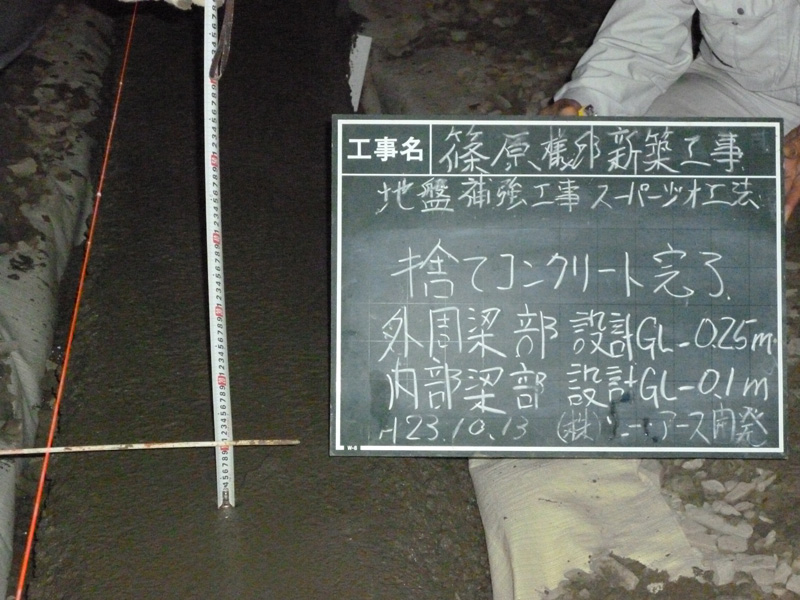 工事名 篠原様邸新築工事
地盤補強工事 スーパージオ工法
捨てコンクリート完了
外周梁部 設計GL-0.25m
内部梁部 設計GL-0.1m
H23.10.13 (株)ソニーアース開発